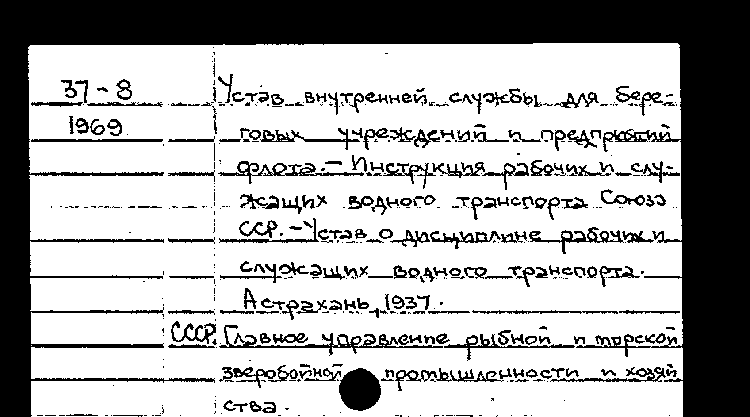 37-8 Устав внутренней службы для бере-
1969 говых учреждений и предприятий
флота.- Инструкция рабочих и слу-
жащих водного транспорта Союза
ССР.-Устав о дисциплине рабочих и
служащих водного транспорта.
Астрахань, 1937.
СССР. Главное управление рыбной и морской
зверобойной промышленности и хозяй
ства.